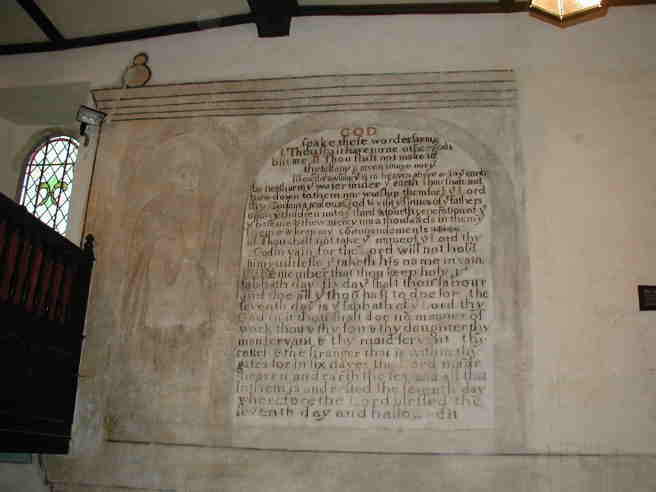 GOD
spake these wordes saying
I Thou shalt have none other gods
but me II Thou shalt not make to
thy selfe any graven image nor y
likenes of any thing y is in heaven above or in y earth
be neth or in y water under y earth thou shalt not
bow down to them nor worship them for I y Lord
thy God am a jealous god & visit y sinnes of y fathers
upon y children unto y third & fourth generation of y
y hate me & shew mercy unto thousands in them y
love me & keep my commandements
III Thou shalt not take y name of y Lord thy
God in vain for the Lord will not hold
him guiltlesse y taketh his name in vain
IV Remember that thou keep holy y
sabbath day six dayes shalt thou labour
and doe all y thou hast to doe for the
seventh day is y sabbath of y Lord thy
God in it thou shalt doe no manner of
work thou & thy son & thy daughter thy
man servant & thy maid servant thy
cattel & the stranger that is within thy
gates for in six dayes the Lord made
heaven and earth the sea and all that
in them is and rested the seventh day
wherefore the Lord blessed the
seventh day and hallowed it